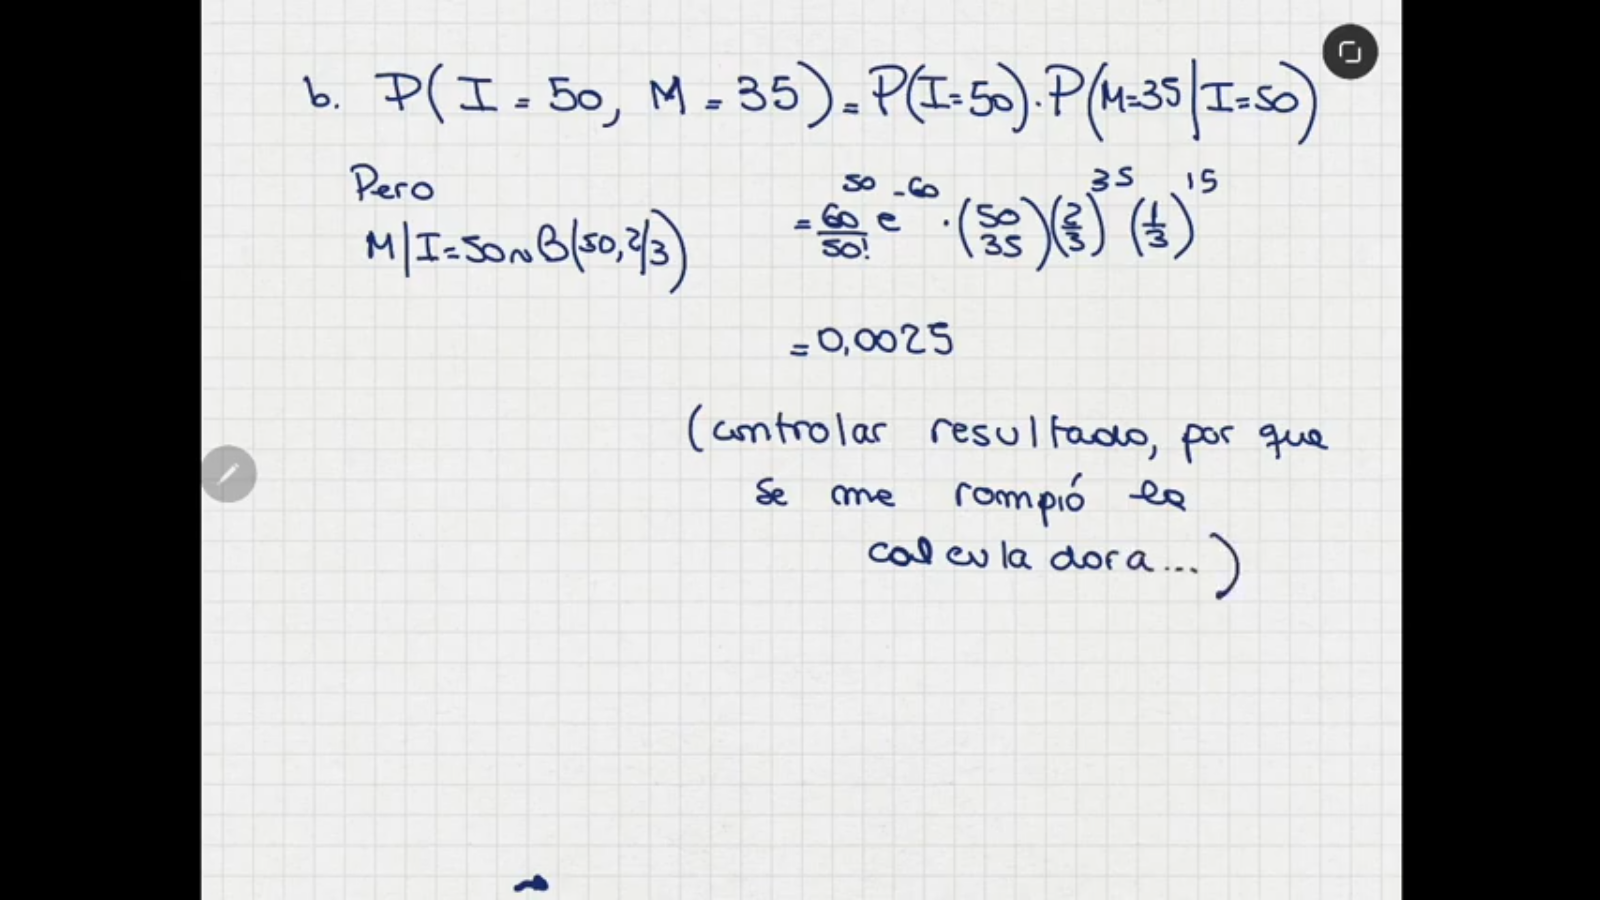 b. P(I = 50, M = 35) = P(I=50) · P(M=35|I=50)
Pero
M|I=50 ~ B(50, 2/3)
= 60^50/50! e^-60 · (50 35) (2/3)^35 (1/3)^15
= 0,0025
(controlar resultado, por que
se me rompió la
calculadora...)